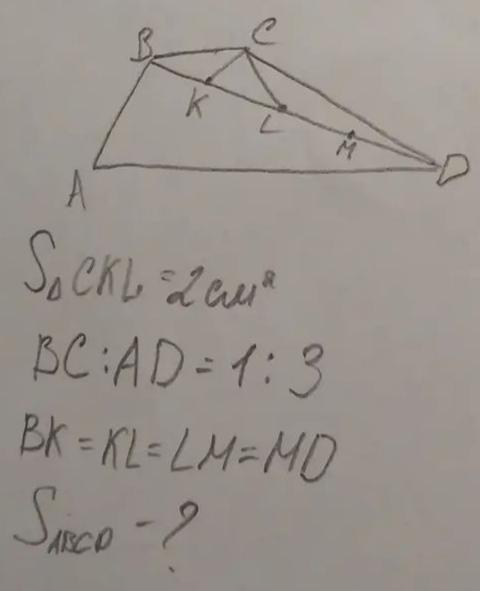 B C
K L M
A D
S△CKL = 2 см²
BC : AD = 1 : 3
BK = KL = LM = MD
SABCD - ?